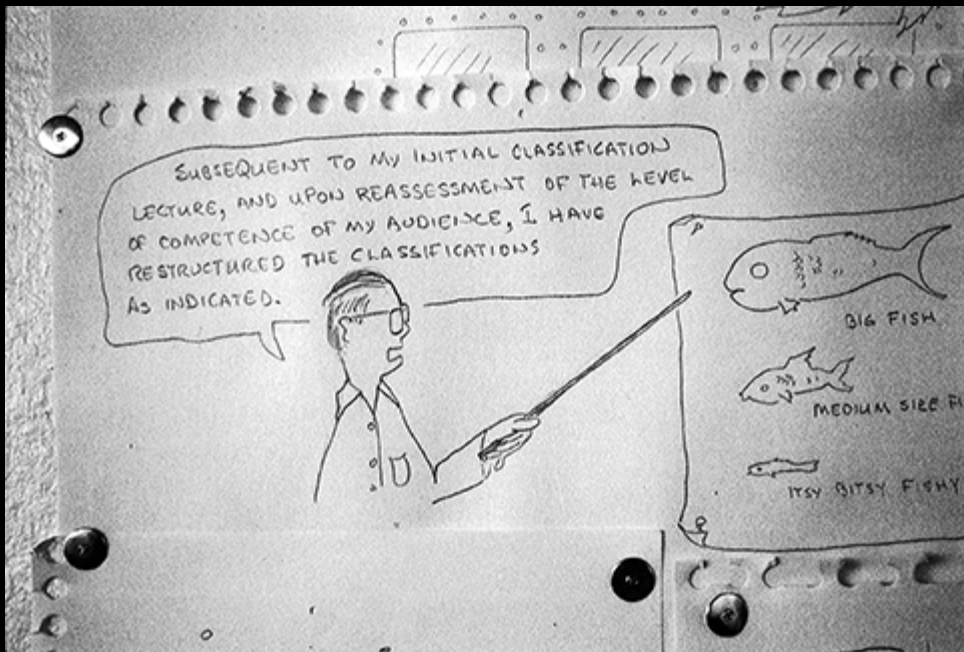 SUBSEQUENT TO MY INITIAL CLASSIFICATION
LECTURE, AND UPON REASSESSMENT OF THE LEVEL
OF COMPETENCE OF MY AUDIENCE, I HAVE
RESTRUCTURED THE CLASSIFICATIONS
AS INDICATED.
BIG FISH
MEDIUM SIZE FI
ITSY BITSY FISHY